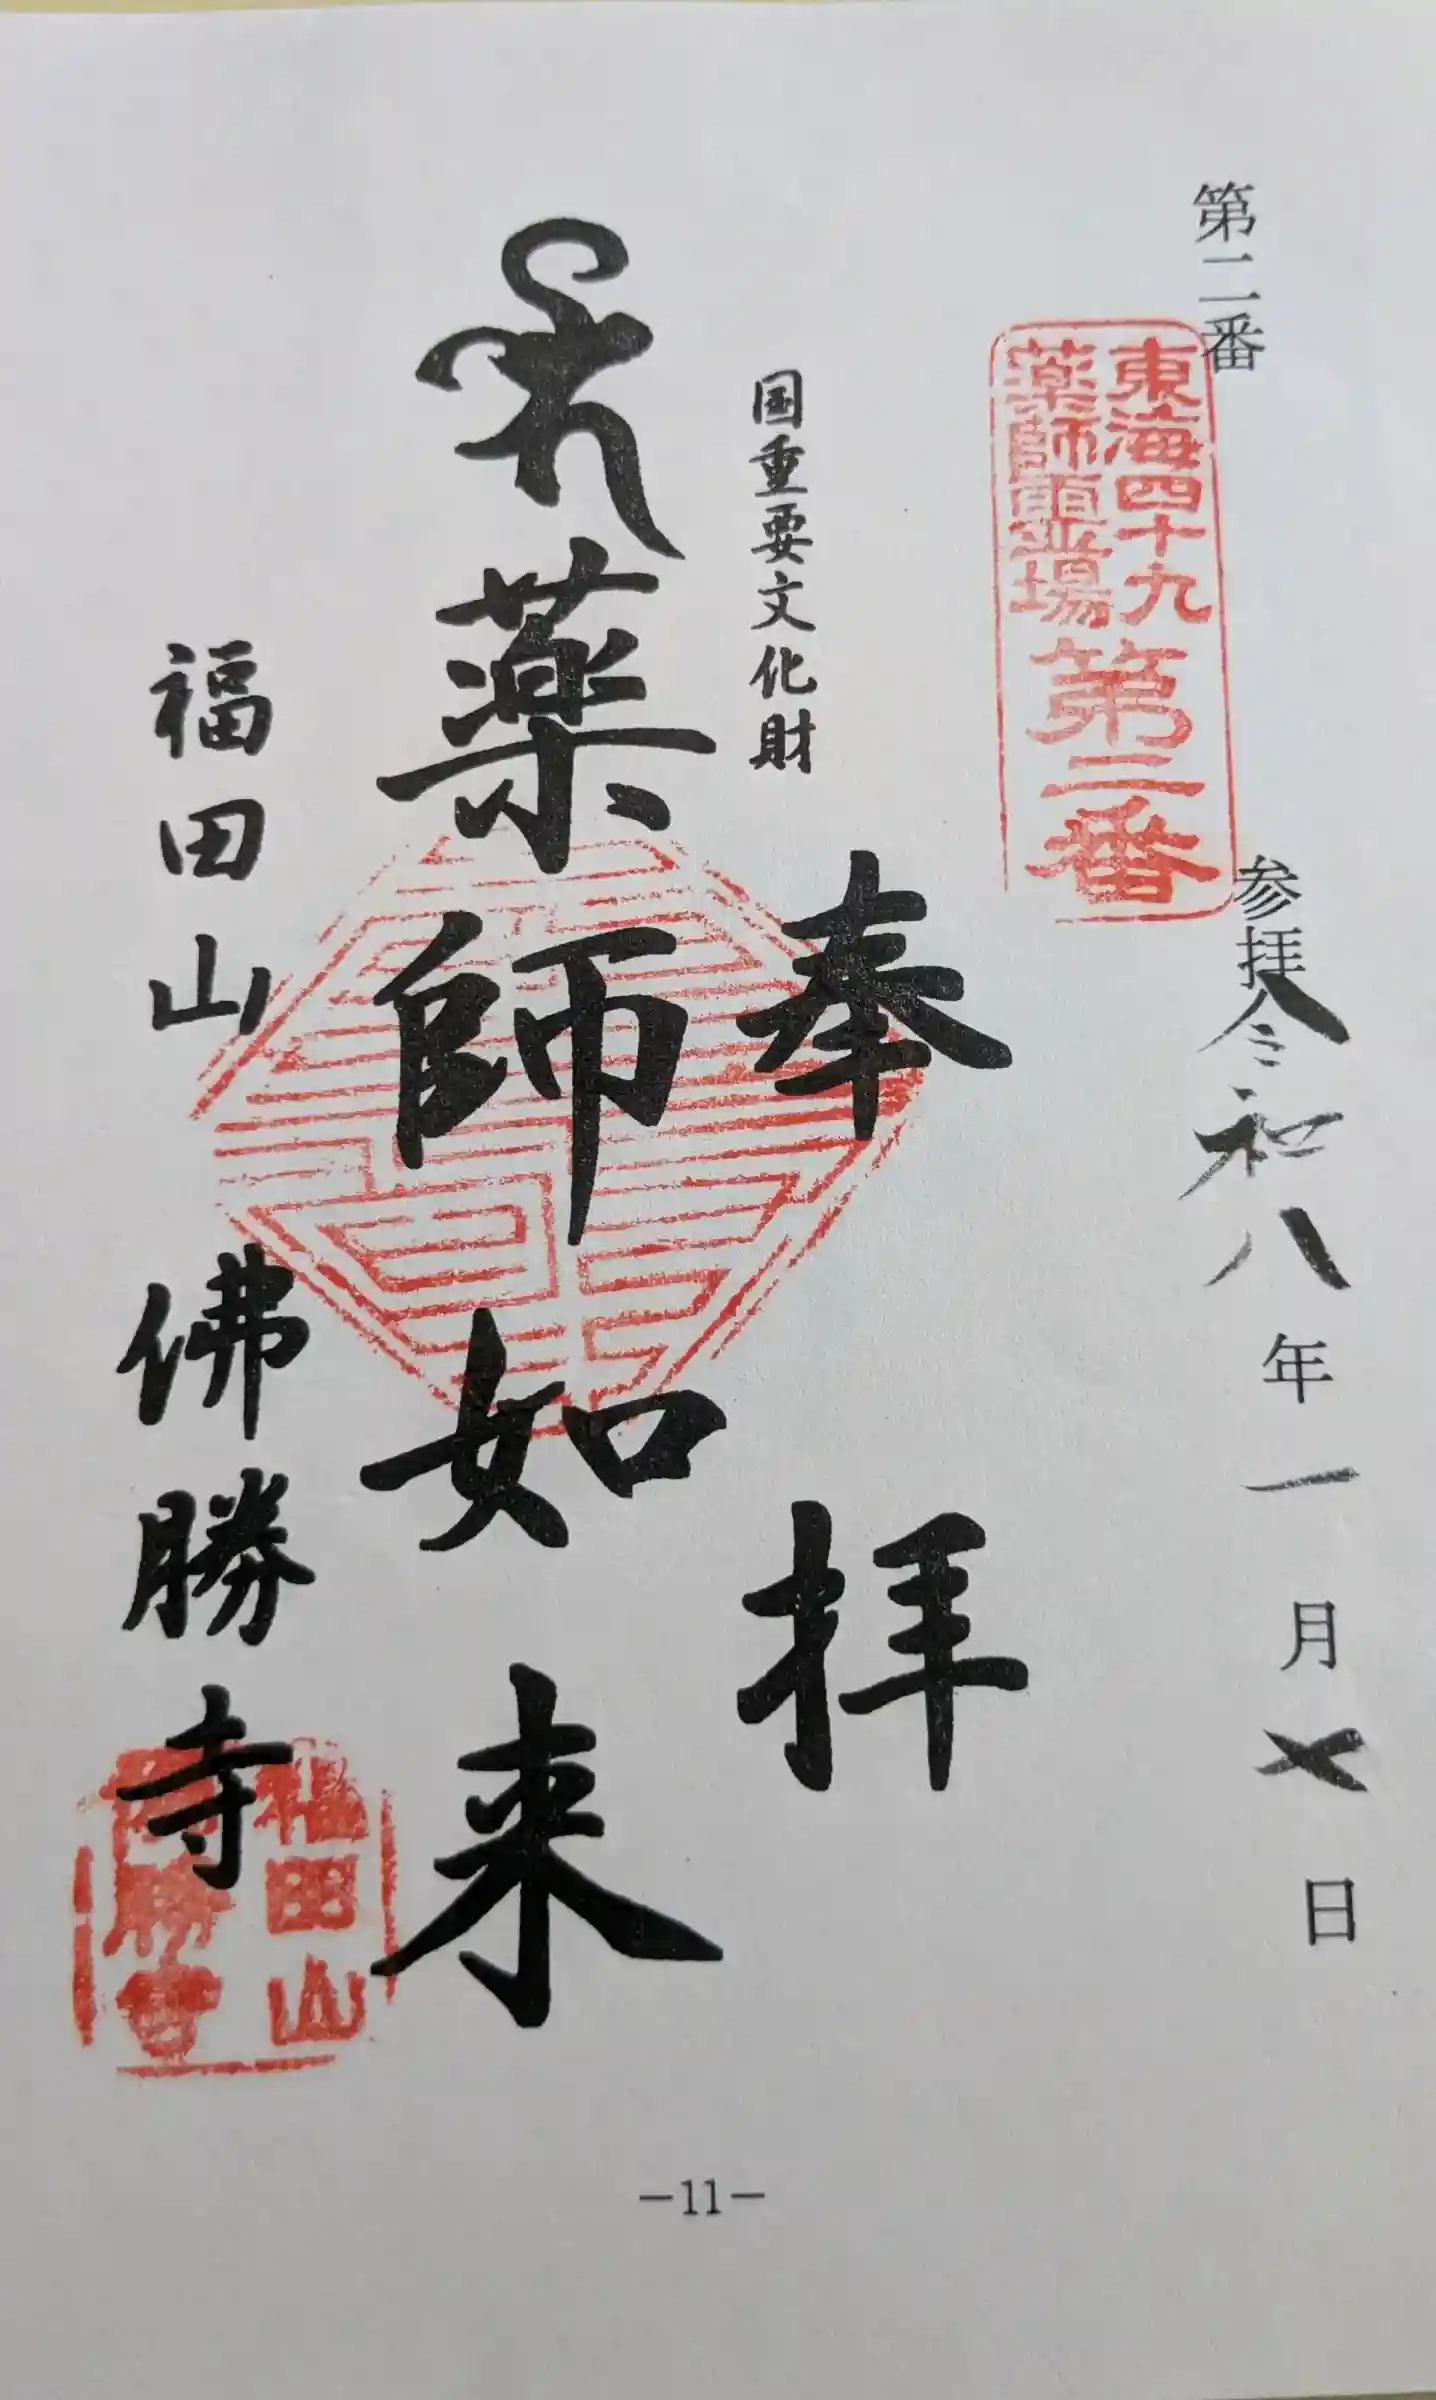 第二番
参拝令和八年一月七日
東海四十九
薬師霊場
第二番
奉拝
国重要文化財
薬師如来
福田山
佛勝寺
福田山
佛勝寺
－11－